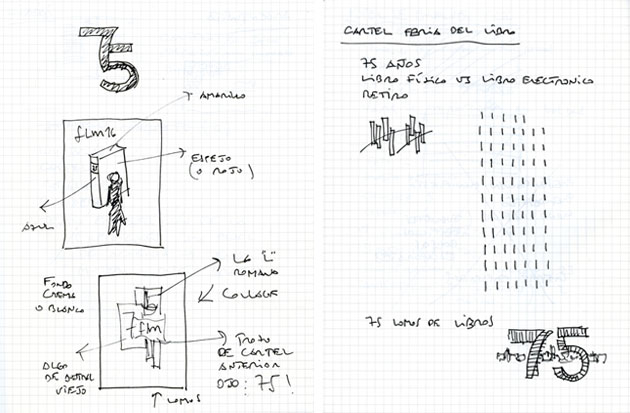 75
AMARILLO
flm16
ESPEJO
(O ROJO)
AZUL
FONDO
CREMA
O BLANCO
LA "L"
ROMANO
COLLAGE
7 flm
ALGO
DE
VIEJO
TROZO
DE CARTEL
ANTERIOR
OJO: 75!
LOMOS
CARTEL FERIA DEL LIBRO
75 AÑOS
LIBRO FÍSICO VS LIBRO ELECTRONICO
RETIRO
75 LOMOS DE LIBROS
75